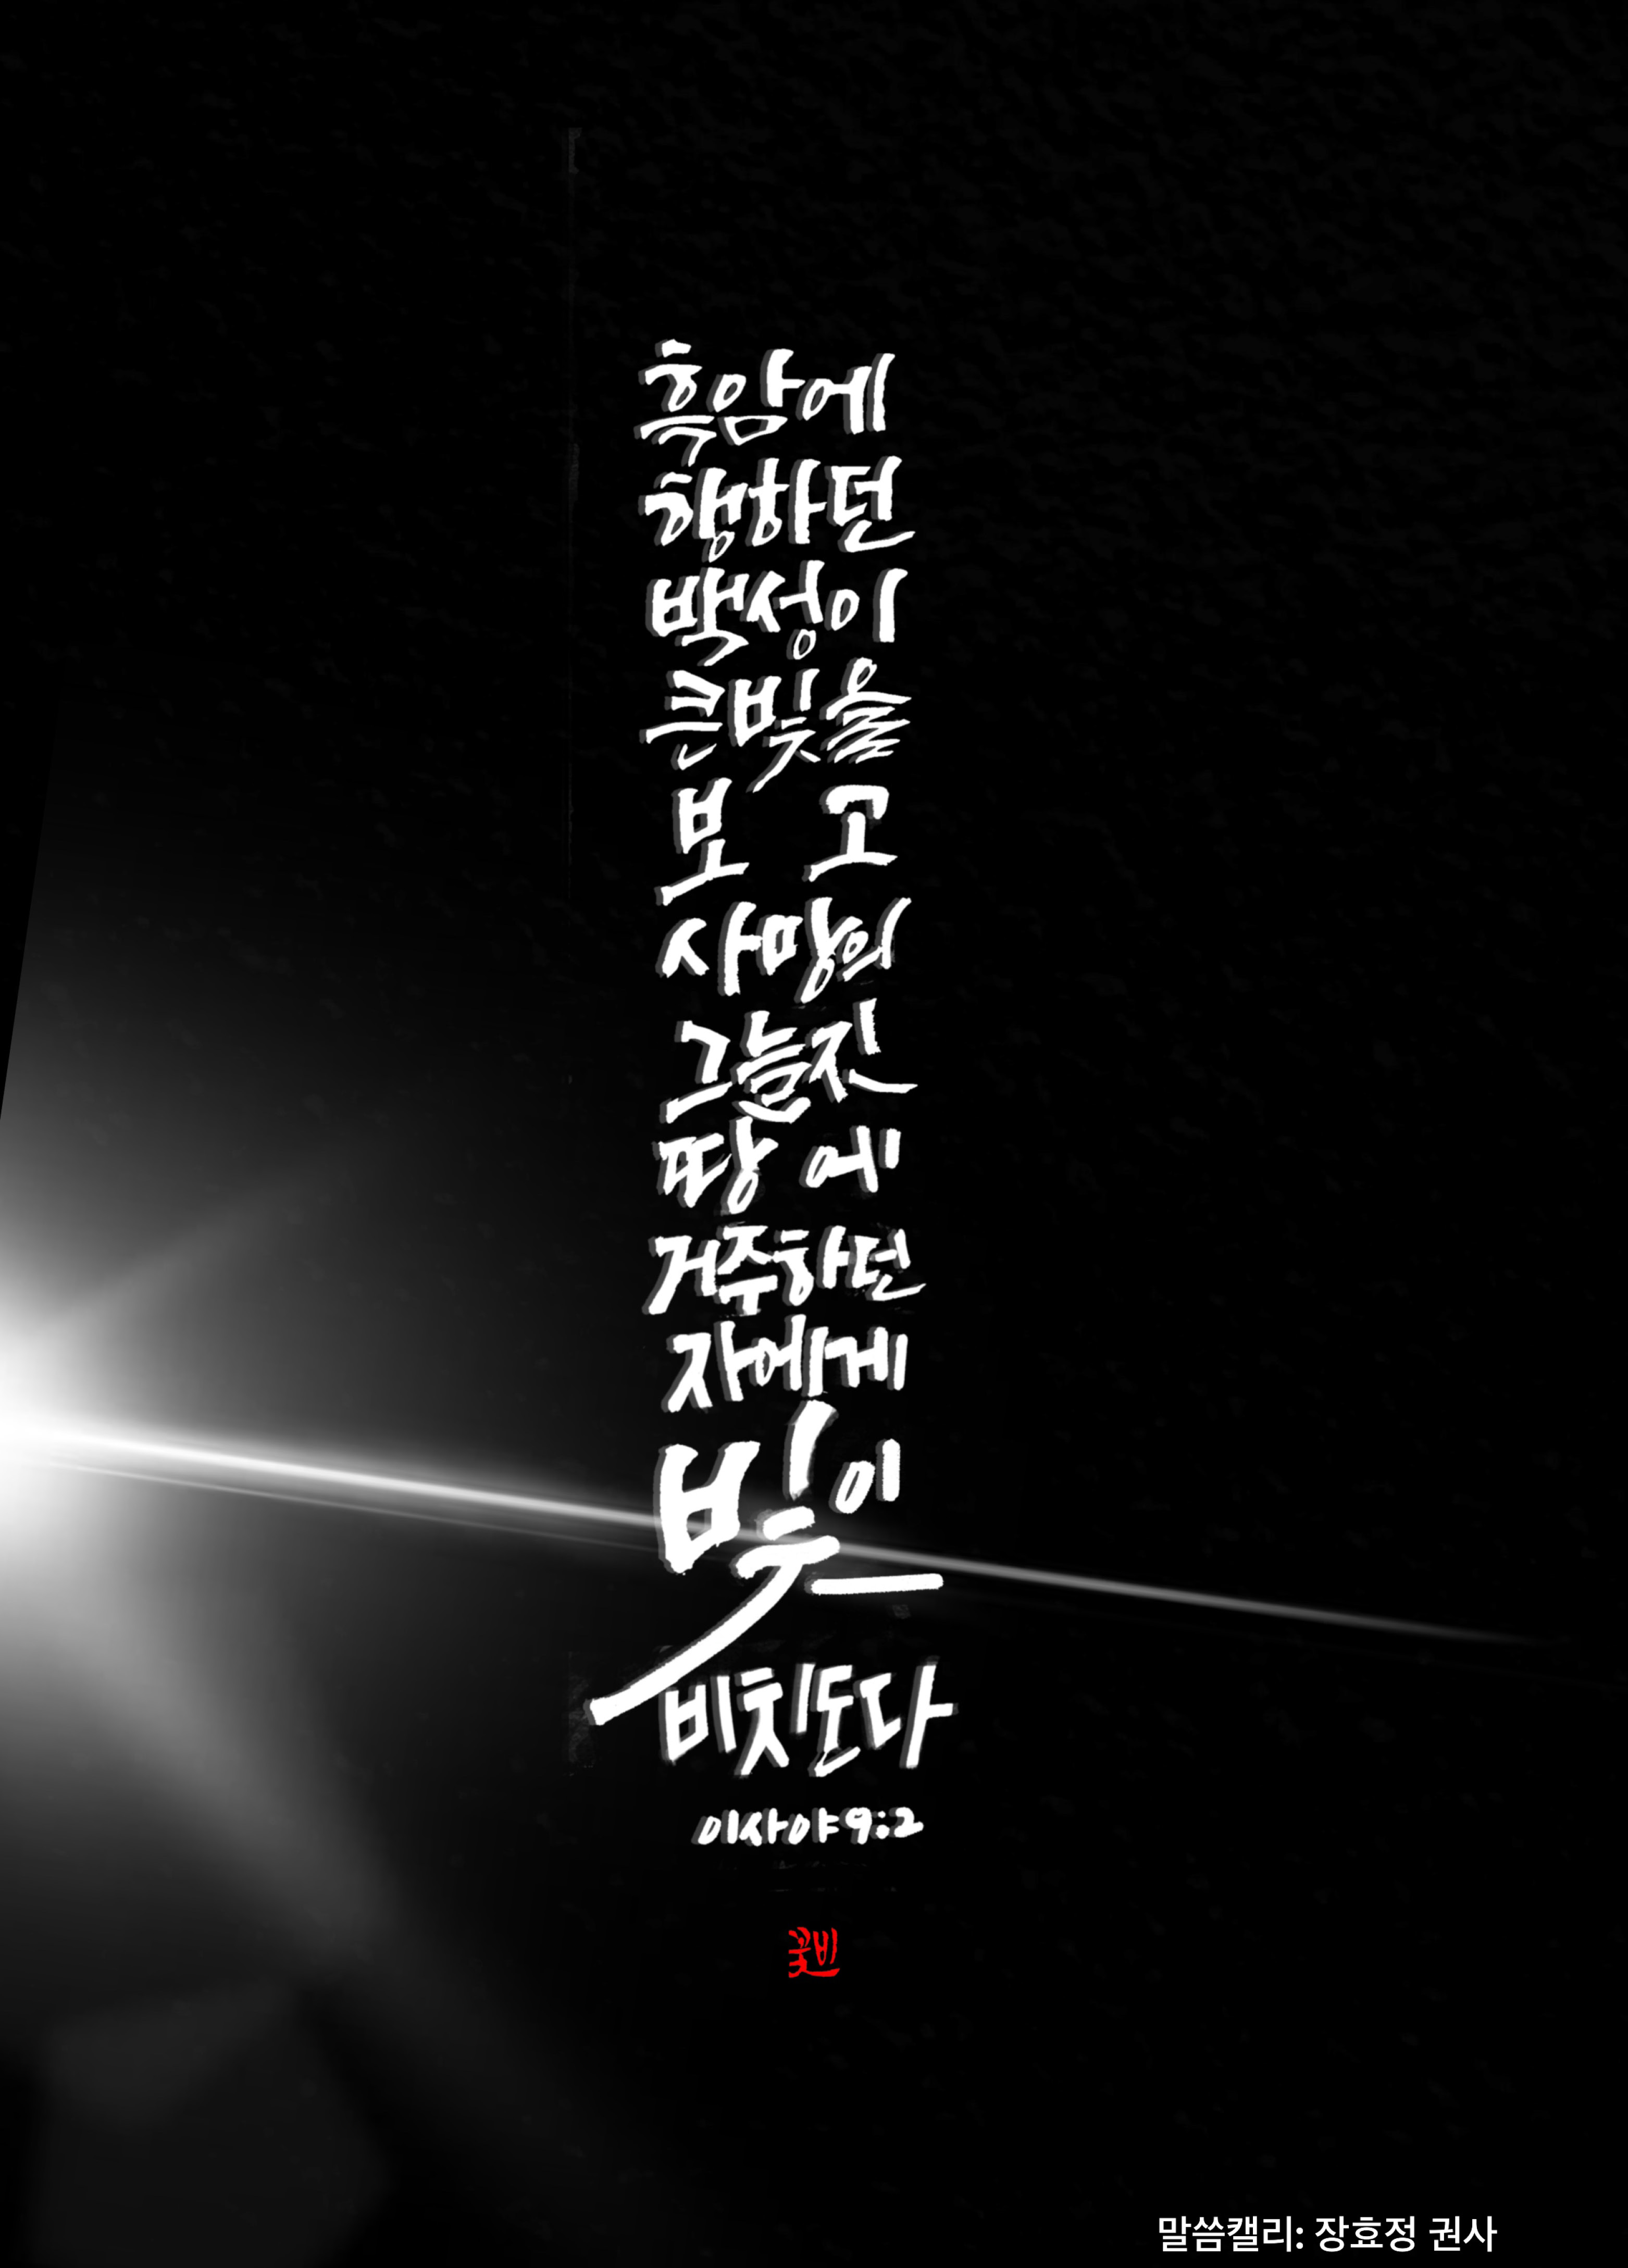 흑암에
행하던
백성이
큰빛을
보 고
사망의
그늘진
땅 에
거주하던
자에게
빛이
비치도다
이사야9:2
꽃비
말씀캘리: 장효정 권사